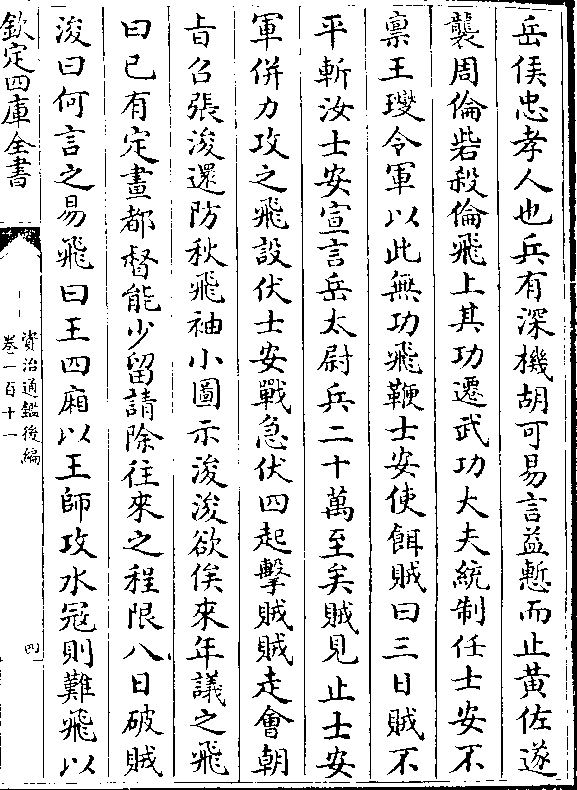 岳侯忠孝人也兵有深機胡可易言益慙而止黄佐遂
襲周倫砦殺倫飛上其功遷武功大夫統制任士安不
禀王𤫉令軍以此無功飛鞭士安使餌賊曰三日賊不
平斬汝士安宣言岳太尉兵二十萬至矣賊見止士安
軍併力攻之飛設伏士安戰急伏四起擊賊賊走會朝
旨召張浚還防秋飛袖小圖示浚浚欲俟來年議之飛
曰已有定畫都督能少留請除往來之程限八日破賊
浚曰何言之易飛曰王四廂以王師攻水冦則難飛以
欽定四庫全書
資治通鑑後編
卷一百十一
四